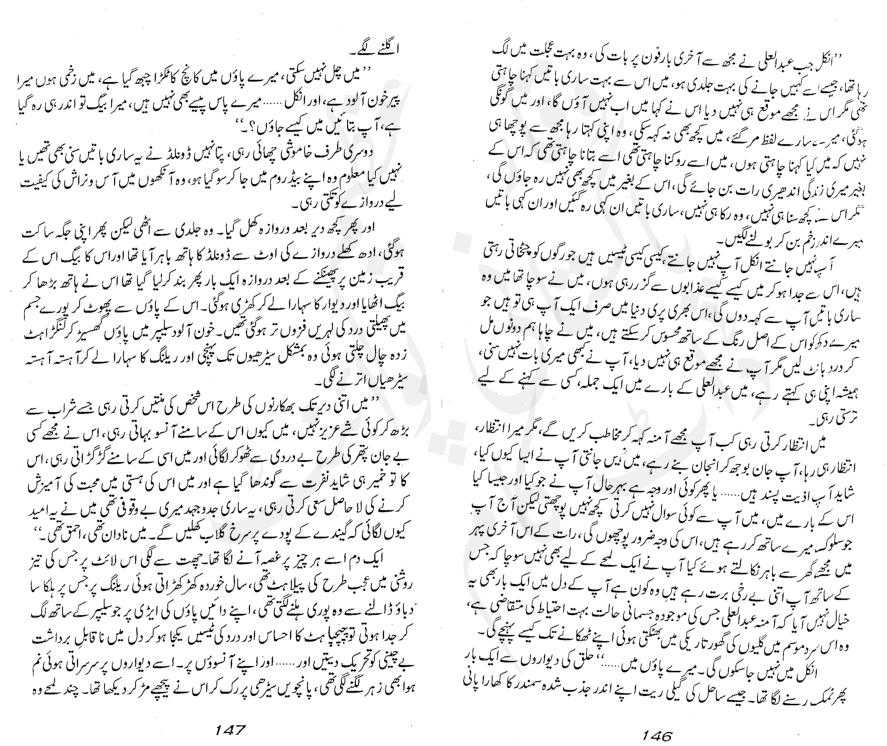 ”انکل جب عبدالعلی نے مجھ سے آخری بار فون پر بات کی، وہ بہت عجلت میں لگ
رہا تھا، جیسے اسے کہیں جانے کی بہت جلدی ہو، میں اس سے بہت ساری باتیں کہنا چاہتی
تھی مگر اس نے مجھے موقع ہی نہیں دیا اس نے کہا میں اب نہیں آؤں گا، اور میں گونگی
ہوگئی، میرے سارے لفظ مر گئے، میں کچھ بھی نہ کہہ سکی، وہ اپنی کہتا رہا مجھ سے پوچھا ہی
نہیں کہ میں کیا کہنا چاہتی ہوں، میں اسے روکنا چاہتی تھی اسے بتانا چاہتی تھی کہ اس کے
بغیر میری زندگی اندھیری رات بن جائے گی، اس کے بغیر میں کچھ بھی نہیں رہ جاؤں گی،
مگر اس نے کچھ سنا ہی نہیں، وہ رکا ہی نہیں، ساری باتیں ان کہی رہ گئیں اور ان کہی باتیں
میرے اندر زخم بن کر بولنے لگیں۔
آپ نہیں جانتے انکل آپ نہیں جانتے، کیسی کیسی ٹیسیں ہیں جو رگوں کو چٹخاتی رہتی
ہیں، اس سے جدا ہو کر میں کیسے کیسے عذابوں سے گزر رہی ہوں، میں نے سوچا تھا میں وہ
ساری باتیں آپ سے کہہ دوں گی، اس بھری پری دنیا میں صرف ایک آپ ہی تو ہیں جو
میرے دکھ کو اس کے اصل رنگ کے ساتھ محسوس کر سکتے ہیں، میں نے چاہا ہم دونوں مل
کر درد بانٹ لیں مگر آپ نے مجھے موقع ہی نہیں دیا، آپ نے کبھی میری بات نہیں سنی،
ہمیشہ اپنی ہی کہتے رہے، میں عبدالعلی کے بارے میں ایک جملہ، کسی سے کہنے کے لیے
ترستی رہی۔
میں انتظار کرتی رہی کب آپ مجھے آمنہ کہہ کر مخاطب کریں گے، مگر میرا انتظار،
انتظار ہی رہا، آپ جان بوجھ کر انجان بنے رہے، میں نہیں جانتی آپ نے ایسا کیوں کیا،
شاید آپ اذیت پسند ہیں...... یا پھر کوئی اور وجہ ہے بہرحال آپ نے جو کیا اور جیسا کیا
اس کے بارے میں، میں آپ سے کوئی سوال نہیں کرتی کچھ نہیں پوچھتی لیکن آج آپ
جو سلوک میرے ساتھ کر رہے ہیں، اس کی وجہ ضرور پوچھوں گی، رات کے اس آخری پہر
میں مجھے گھر سے باہر نکالتے ہوئے کیا آپ نے ایک لمحے کے لیے بھی نہیں سوچا کہ جس
کے ساتھ آپ اتنی بے رخی برت رہے ہیں وہ کون ہے آپ کے دل میں ایک بار بھی یہ
خیال نہیں آیا کہ آمنہ عبدالعلی جس کی موجودہ جسمانی حالت بہت احتیاط کی متقاضی ہے،
وہ اس سرد موسم میں گلیوں کی گھور تاریکی میں بھٹکتی ہوئی اپنے ٹھکانے تک کیسے پہنچے گی۔
انکل میں نہیں جا سکوں گی۔ میرے پاؤں میں......“ حلق کی دیواروں سے ایک بار
پھر نمک رسنے لگا تھا۔ جیسے ساحل کی گیلی ریت اپنے اندر جذب شدہ سمندر کا کھارا پانی
146
اگلنے لگے۔
”میں چل نہیں سکتی، میرے پاؤں میں کانچ کا ٹکڑا چبھ گیا ہے، میں زخمی ہوں میرا
پیر خون آلود ہے، اور انکل...... میرے پاس پیسے بھی نہیں ہیں، میرا بیگ تو اندر ہی رہ گیا
ہے، آپ بتائیں میں کیسے جاؤں؟۔“
دوسری طرف خاموشی چھائی رہی، پتا نہیں ڈونلڈ نے یہ ساری باتیں سنی بھی تھیں یا
نہیں کیا معلوم وہ اپنے بیڈ روم میں جا کر سو گیا ہو، وہ آنکھوں میں آس و نراش کی کیفیت
لیے دروازے کو تکتی رہی۔
اور پھر کچھ دیر بعد دروازہ کھل گیا۔ وہ جلدی سے اٹھی لیکن پھر اپنی جگہ ساکت
ہوگئی، ادھ کھلے دروازے کی اوٹ سے ڈونلڈ کا ہاتھ باہر آیا تھا اور اس کا بیگ اس کے
قریب زمین پر پھینکنے کے بعد دروازہ ایک بار پھر بند کر لیا گیا تھا اس نے ہاتھ بڑھا کر
بیگ اٹھایا اور دیوار کا سہارا لے کر کھڑی ہوگئی۔ اس کے پاؤں سے پھوٹ کر پورے جسم
میں پھیلتی درد کی لہریں فزوں تر ہو گئی تھیں۔ خون آلود سلیپر میں پاؤں گھسیڑ کر لنگڑاہٹ
زدہ چال چلتی ہوئی وہ بمشکل سیڑھیوں تک پہنچی اور ریلنگ کا سہارا لے کر آہستہ آہستہ
سیڑھیاں اترنے لگی۔
”میں اتنی دیر تک بھکارنوں کی طرح اس شخص کی منتیں کرتی رہی جسے شراب سے
بڑھ کر کوئی شے عزیز نہیں، میں کیوں اس کے سامنے آنسو بہاتی رہی، اس نے مجھے کسی
بے جان پتھر کی طرح بے دردی سے ٹھوکر لگائی اور میں اسی کے سامنے گڑگڑاتی رہی، اس
کا تو خمیر ہی شاید نفرت سے گوندھا گیا ہے اور میں اس کی ہستی میں محبت کی آمیزش
کرنے کی لا حاصل سعی کرتی رہی، یہ ساری جدوجہد میری بے وقوفی تھی میں نے یہ امید
کیوں لگائی کہ گیندے کے پودے پر سرخ گلاب کھلیں گے۔ میں نادان تھی، احمق تھی۔“
ایک دم اسے ہر چیز پر غصہ آنے لگا تھا۔ چھت سے لگی اس لائٹ پر جس کی تیز
روشنی میں عجب طرح کی پیلاہٹ تھی، سال خوردہ کھڑکھڑاتی ہوئی ریلنگ پر جس پر ہلکا سا
دباؤ ڈالنے سے وہ پوری ہلنے لگتی تھی، اپنے دائیں پاؤں کی ایڑی پر جو سلیپر کے ساتھ لگ
کر جدا ہوتی تو چپچپاہٹ کا احساس اور درد کی ٹیسیں یکجا ہو کر دل میں ناقابل برداشت
بے چینی کو تحریک دیتیں اور...... اور اپنے آنسوؤں پر۔ اسے دیواروں پر سرسراتی ہوئی نم
ہوا بھی زہر لگنے لگی تھی، پانچویں سیڑھی پر رک کر اس نے پیچھے مڑ کر دیکھا تھا۔ چند لمحے وہ
147